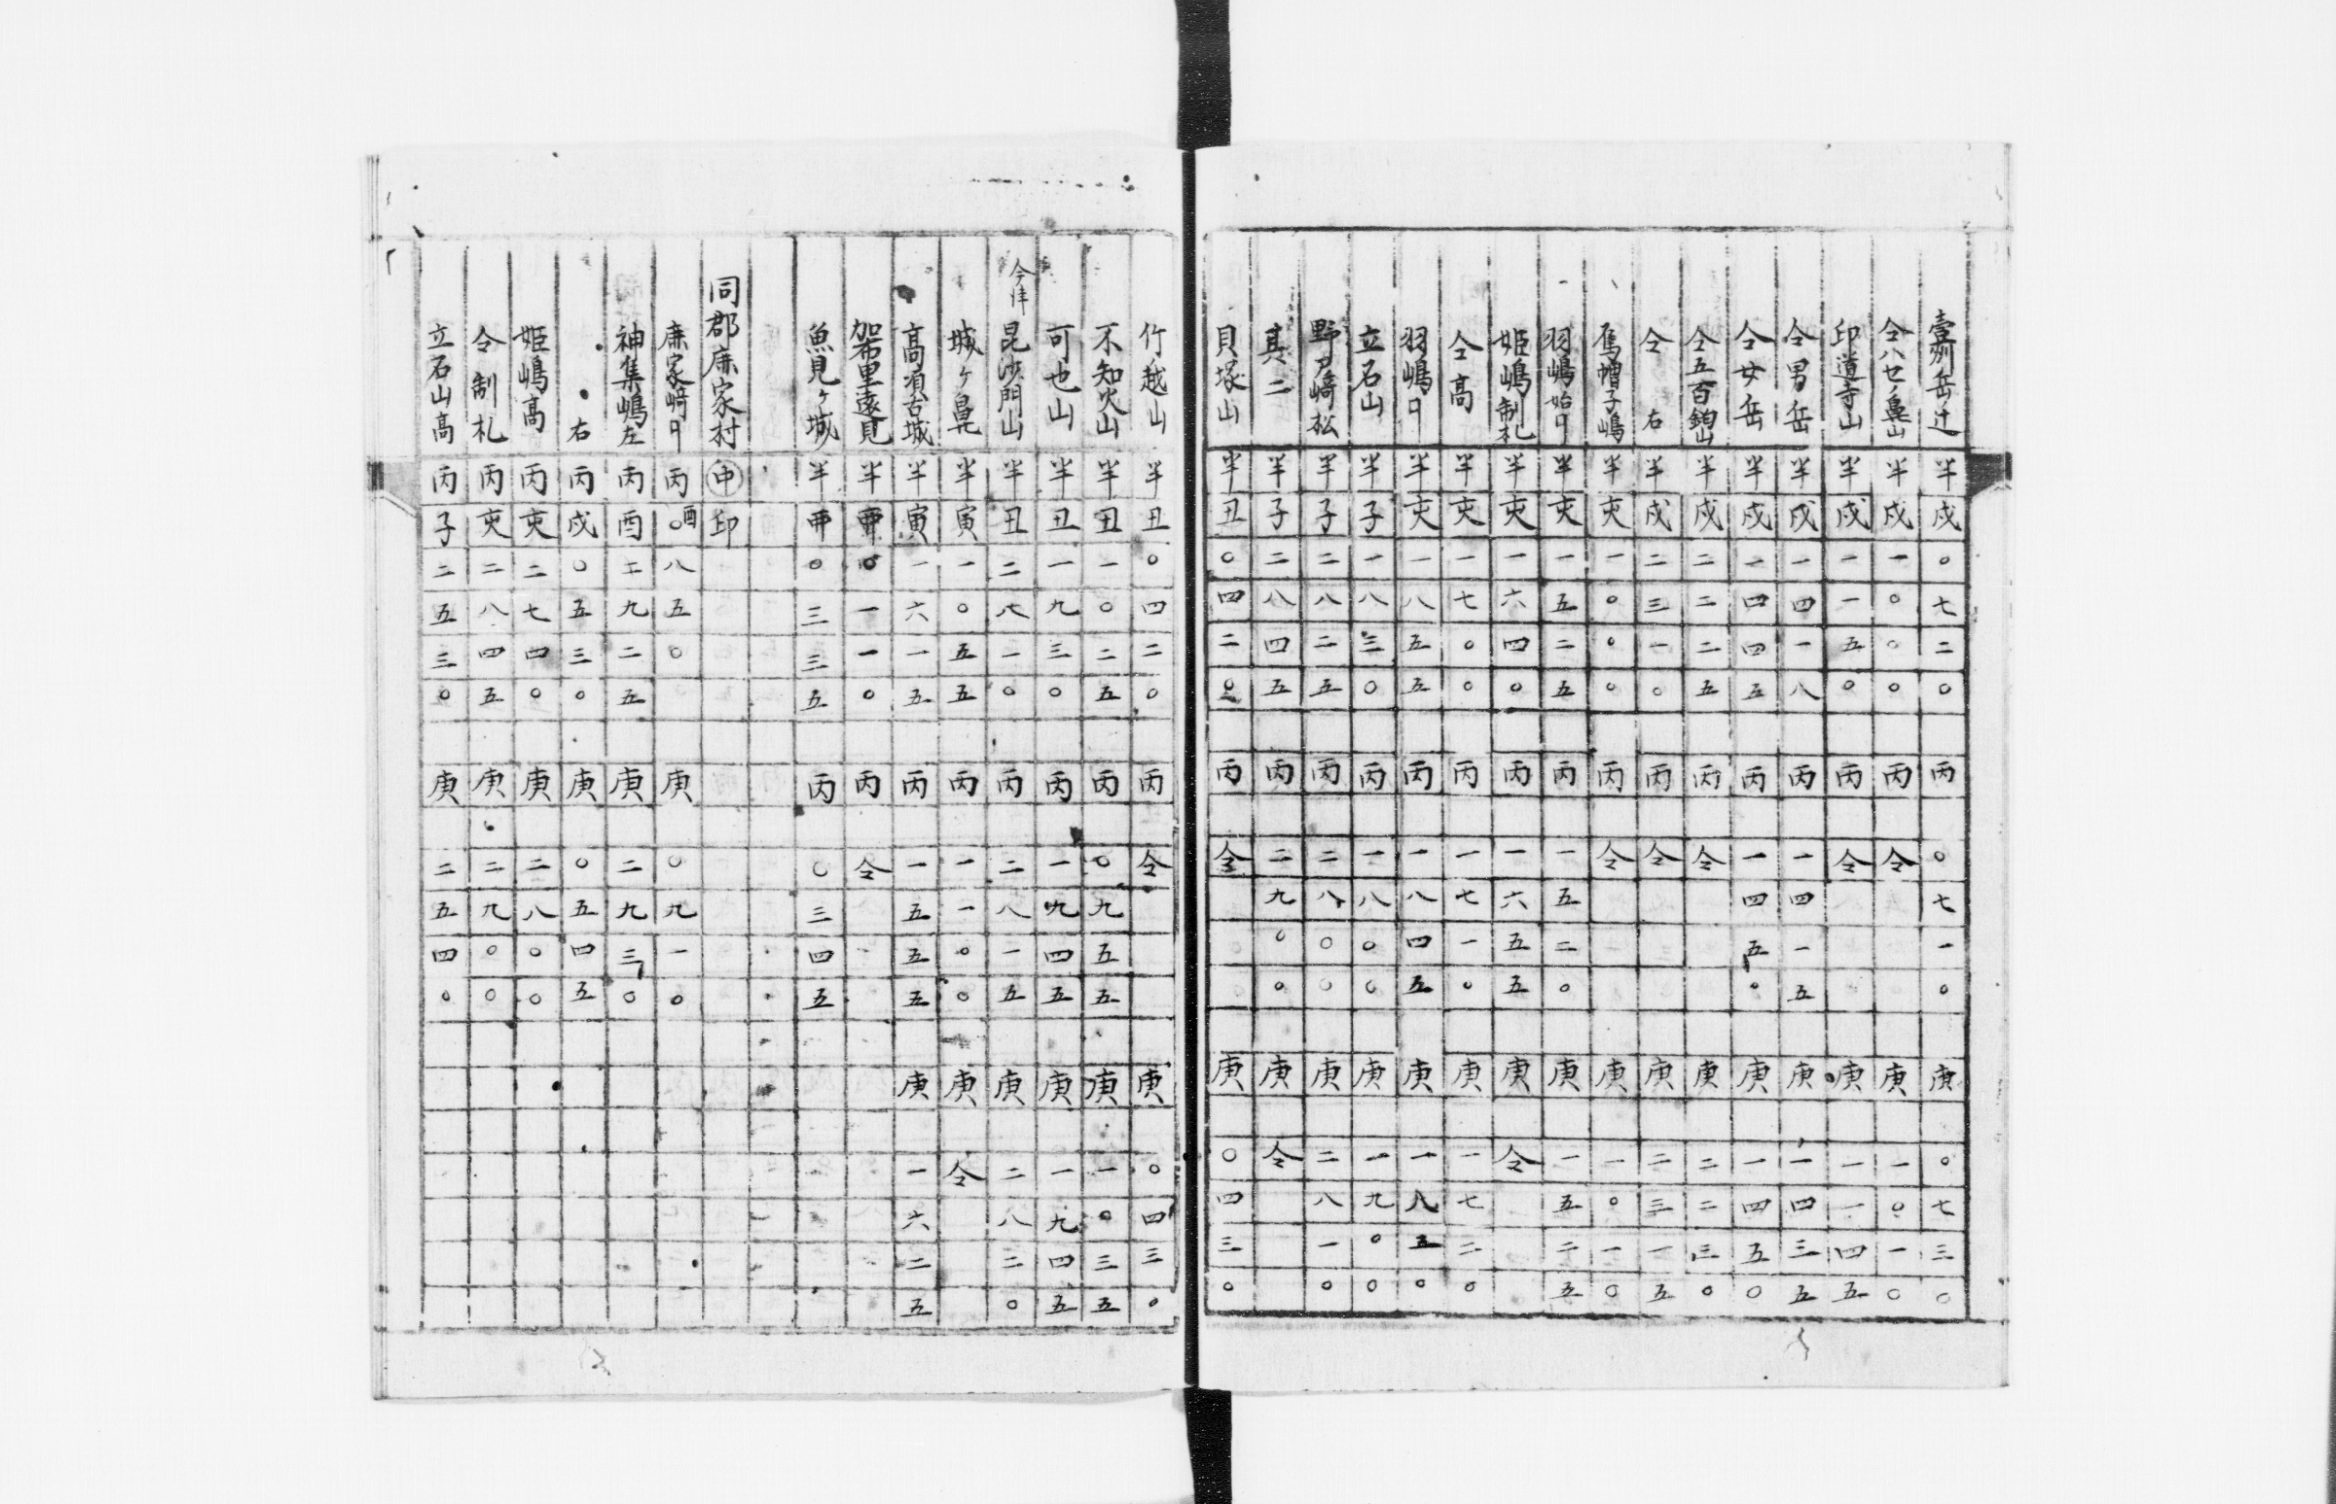 壹刕岳辻 半戌〇七二〇 丙〇七一〇 庚〇七三〇
仝八セノ鼻山 半戌一〇〇〇 丙仝 庚一〇一〇
印道寺山 半戌一一五〇 丙仝 庚一一四五
仝男岳 半戌一四一八 丙一四一五 庚一四三五
仝女岳 半戌一四四五 丙一四五〇 庚一四五〇
仝五百鈎山 半戌二二二五 丙仝 庚二二三〇
仝右 半戌二三一〇 丙仝 庚二三一五
烏帽子嶋 半亥一〇〇〇 丙仝 庚一〇一〇
羽嶋始口 半亥一五二五 丙一五二〇 庚一五二五
姫嶋制札 半亥一六四〇 丙一六五五 庚仝
仝高 半亥一七〇〇 丙一七一〇 庚一七二〇
羽嶋口 半亥一八五五 丙一八四五 庚一八五〇
立石山 半子一八三〇 丙一八〇〇 庚一九〇〇
野乃﨑松 半子二八二五 丙二八〇〇 庚二八一〇
其二 半子二八四五 丙二九〇〇 庚仝
貝塚山 半丑〇四二〇 丙仝 庚〇四三〇
竹越山 半丑〇四二〇 丙仝 庚〇四三〇
不知火山 半丑一〇二五 丙〇九五五 庚一〇三五
可也山 半丑一九三〇 丙一九四五 庚一九四五
今津昆沙門山 半丑二八一〇 丙二八一五 庚二八二〇
城ヶ鼻 半寅一〇五五 丙一一〇〇 庚仝
高須古城 半寅一六一五 丙一五五五 庚一六二五
加布里遠見 半卯〇一一〇 丙仝
魚見ヶ城 半卯〇三三五 丙〇三四五
同郡廉家村 ㊥印
廉家﨑口 丙酉〇八五〇 庚〇九一〇
神集嶋左 丙酉二九二五 庚二九三〇
右 丙戌〇五三〇 庚〇五四五
姫嶋高 丙亥二七四〇 庚二八〇〇
仝制札 丙亥二八四五 庚二九〇〇
立石山高 丙子二五三〇 庚二五四〇